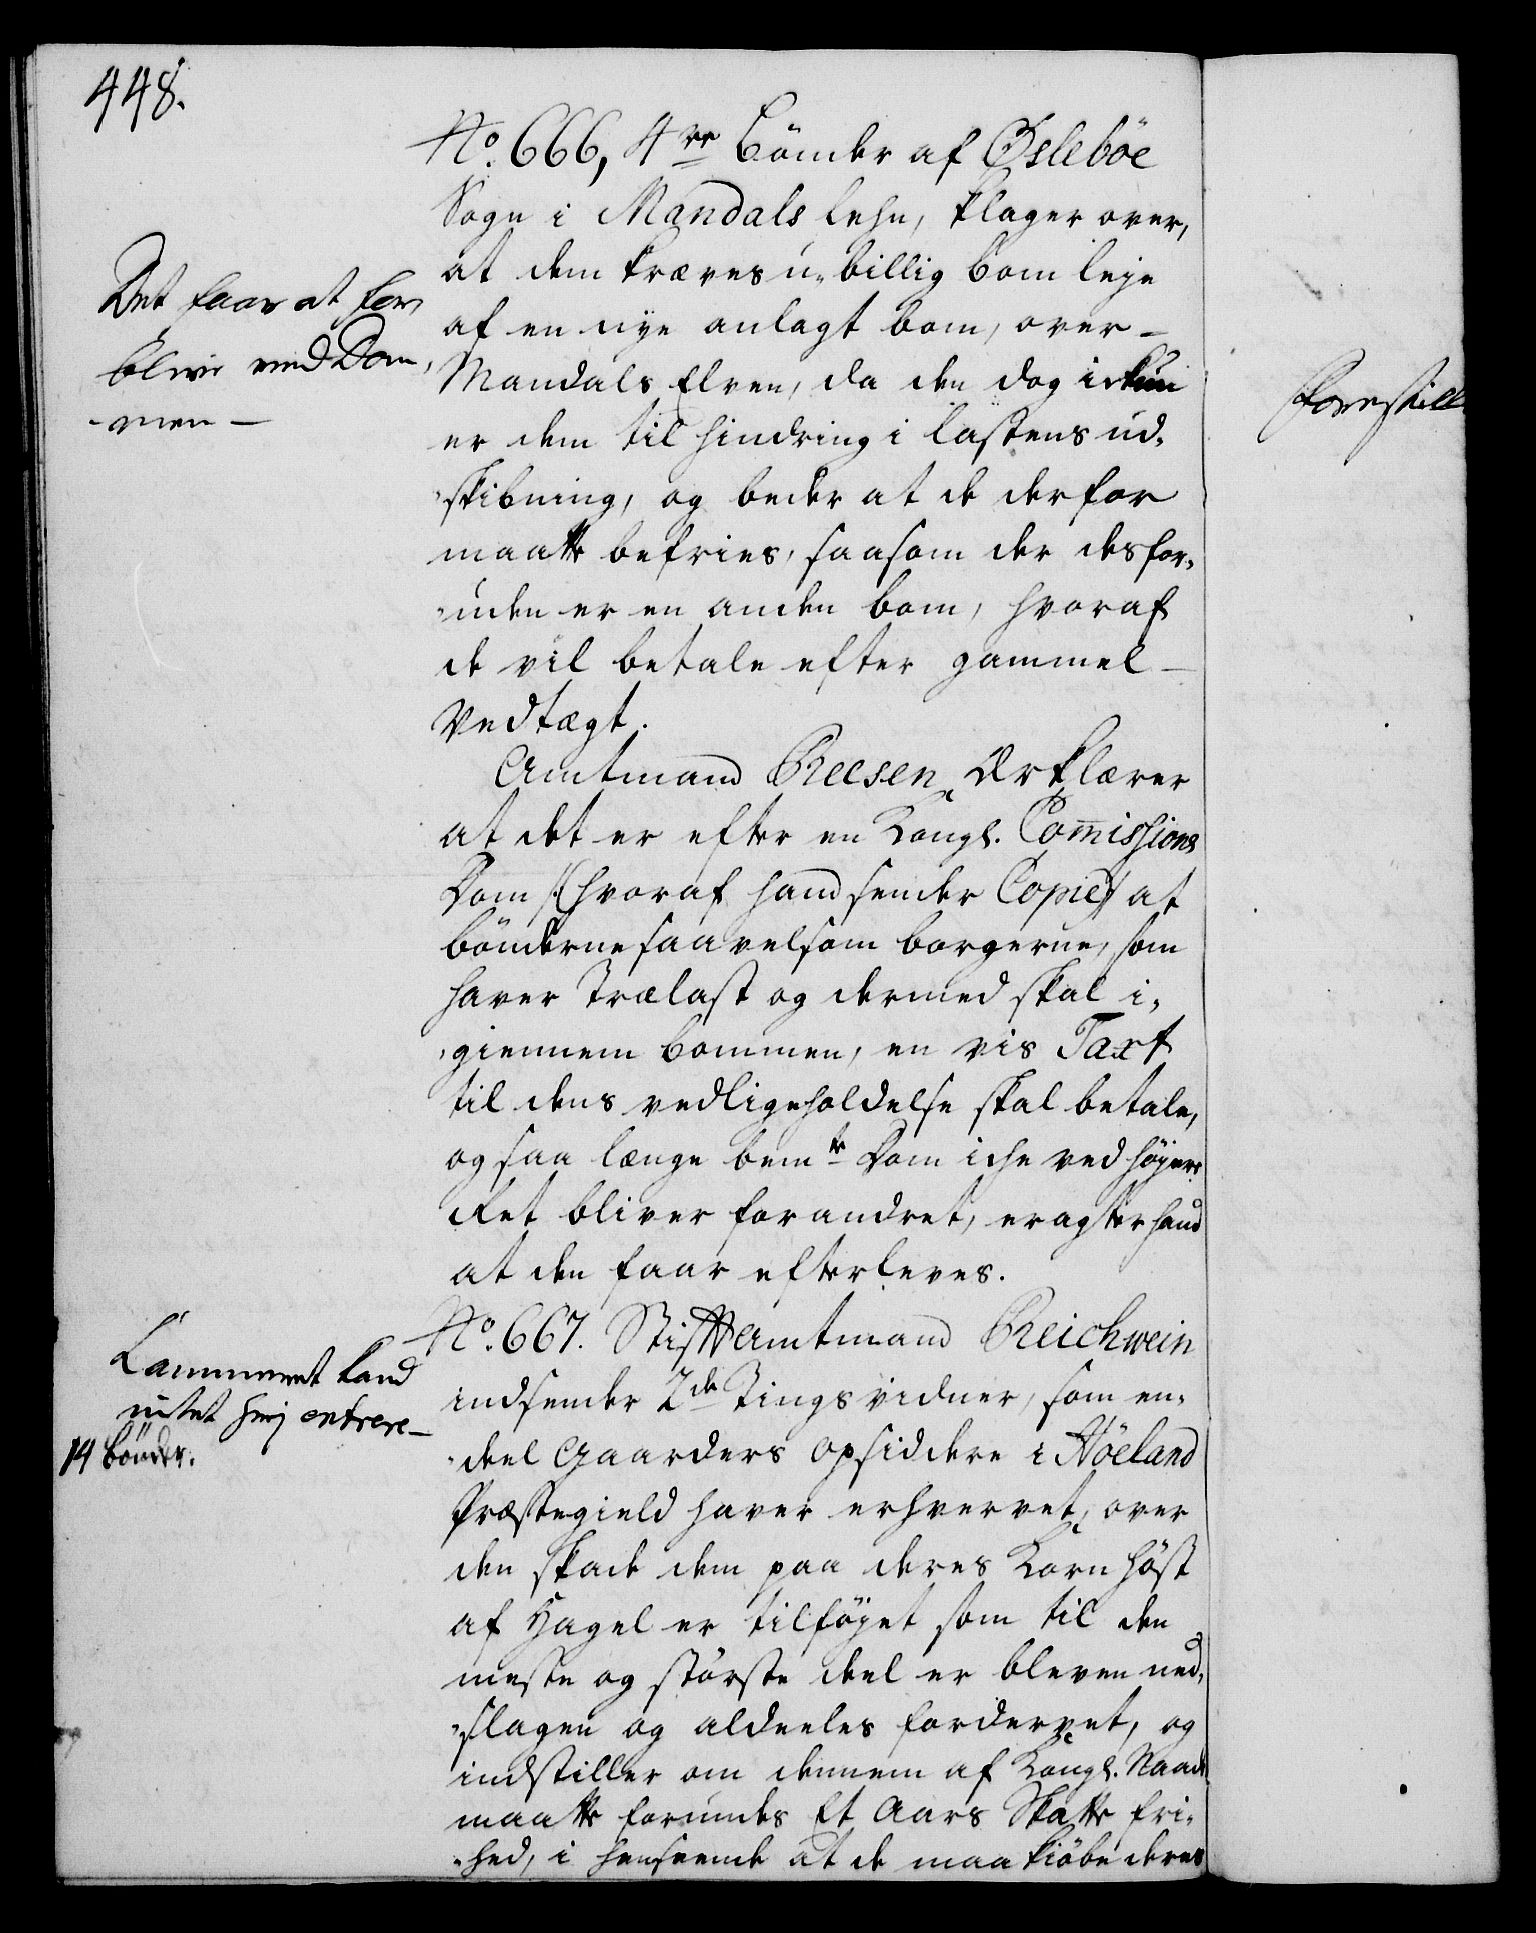 448.
No. 666, 4re Bönder af Öslebøe
Sogn i Mandals Lehn, klager over,
at dem kræves u-billig bom leje
af en nye anlagt bom, over-
Mandals Elven, da den dog ickun
er dem til hindring i lastens ud-
skibning, og beder at de derfor
maatte befries, saasom der desfor-
uden er en anden bom, hvoraf
de vil betale efter gammel-
Vedtægt.
Det faar at for-
blive ved Dom-
men-
Amtmand Reesen Erklærer
at det er efter en Kongl. Commissions
Dom /:hvoraf hand sender Copie:/ at
bönderne saavelsom borgerne, som
haver Trælast og dermed skal i-
giennem bommen, en vis Taxt
til dens vedligeholdelse skal betale,
og saa længe bemte Dom iche ved höyere
Ret bliver forandret, eragter hand
at den faar efterleves.
No. 667. Stiftamtmand Reichwein
indsender 2de Tingsvidner, som en-
deel Gaarders opsiddere i Höeland
Præstegield haver erhvervet, over
den skade dem paa deres Korn höst
af Hagel er tilföyet som til den
meste og störste deel er bleven ned-
slagen og aldeeles fordervet, og
indstiller om dennem af Kongl. Naade
maatte forundes Et Aars Skatte fri-
hed, i henseende at de maa kiöbe deres
Cammeret kand
intet herj entrere-
14 bönder.
Forestill